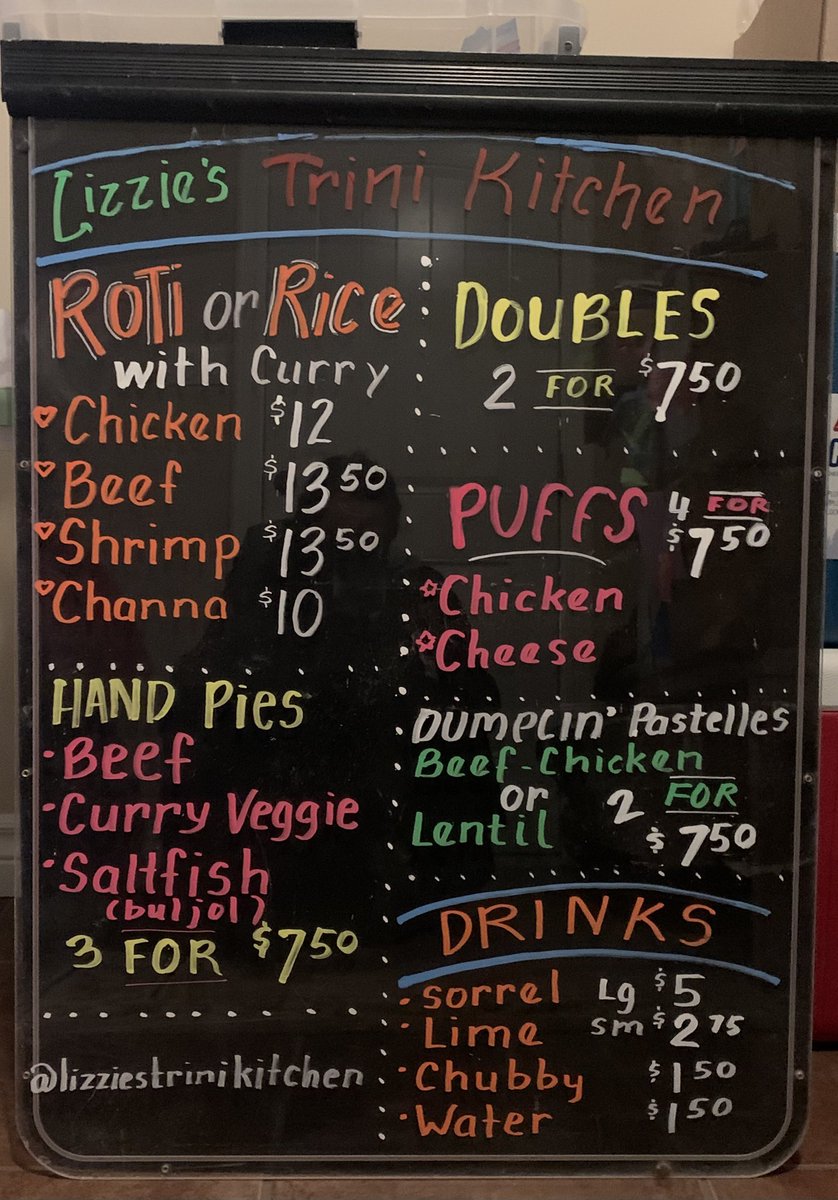 Lizzie's Trini Kitchen
Roti or Rice
with Curry
Chicken $12
Beef $13 50
Shrimp $13 50
Channa $10
HAND Pies
Beef
Curry Veggie
Saltfish
(buljol)
3 FOR $7 50
@lizziestrinikitchen
DOUBLES
2 FOR $7 50
PUFFS 4 FOR
$7 50
Chicken
Cheese
Dumplin' Pastelles
Beef-Chicken
or 2 FOR
Lentil $7 50
DRINKS
Sorrel Lg $5
Lime sm $2 75
Chubby $1 50
Water $1 50